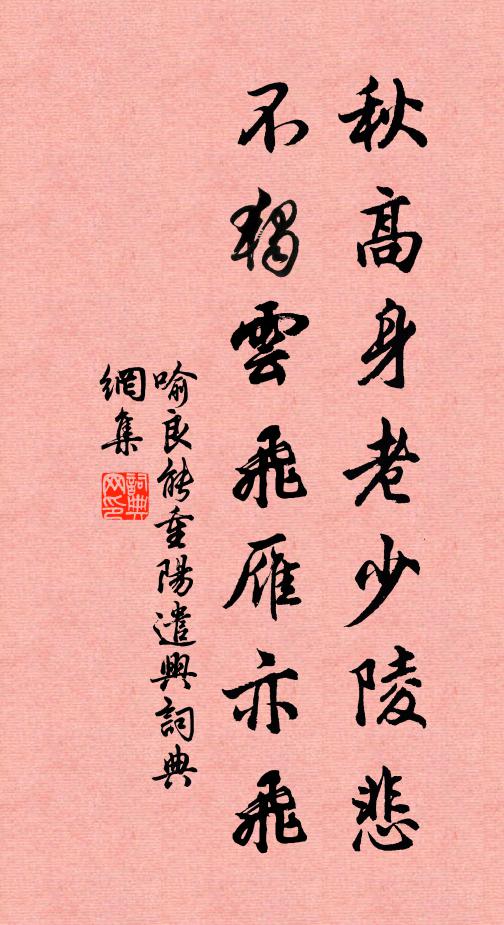 秋高身老少陵悲
不獨雲飛雁亦飛
喻良能重陽遣興詞典
網集
詞典
网印